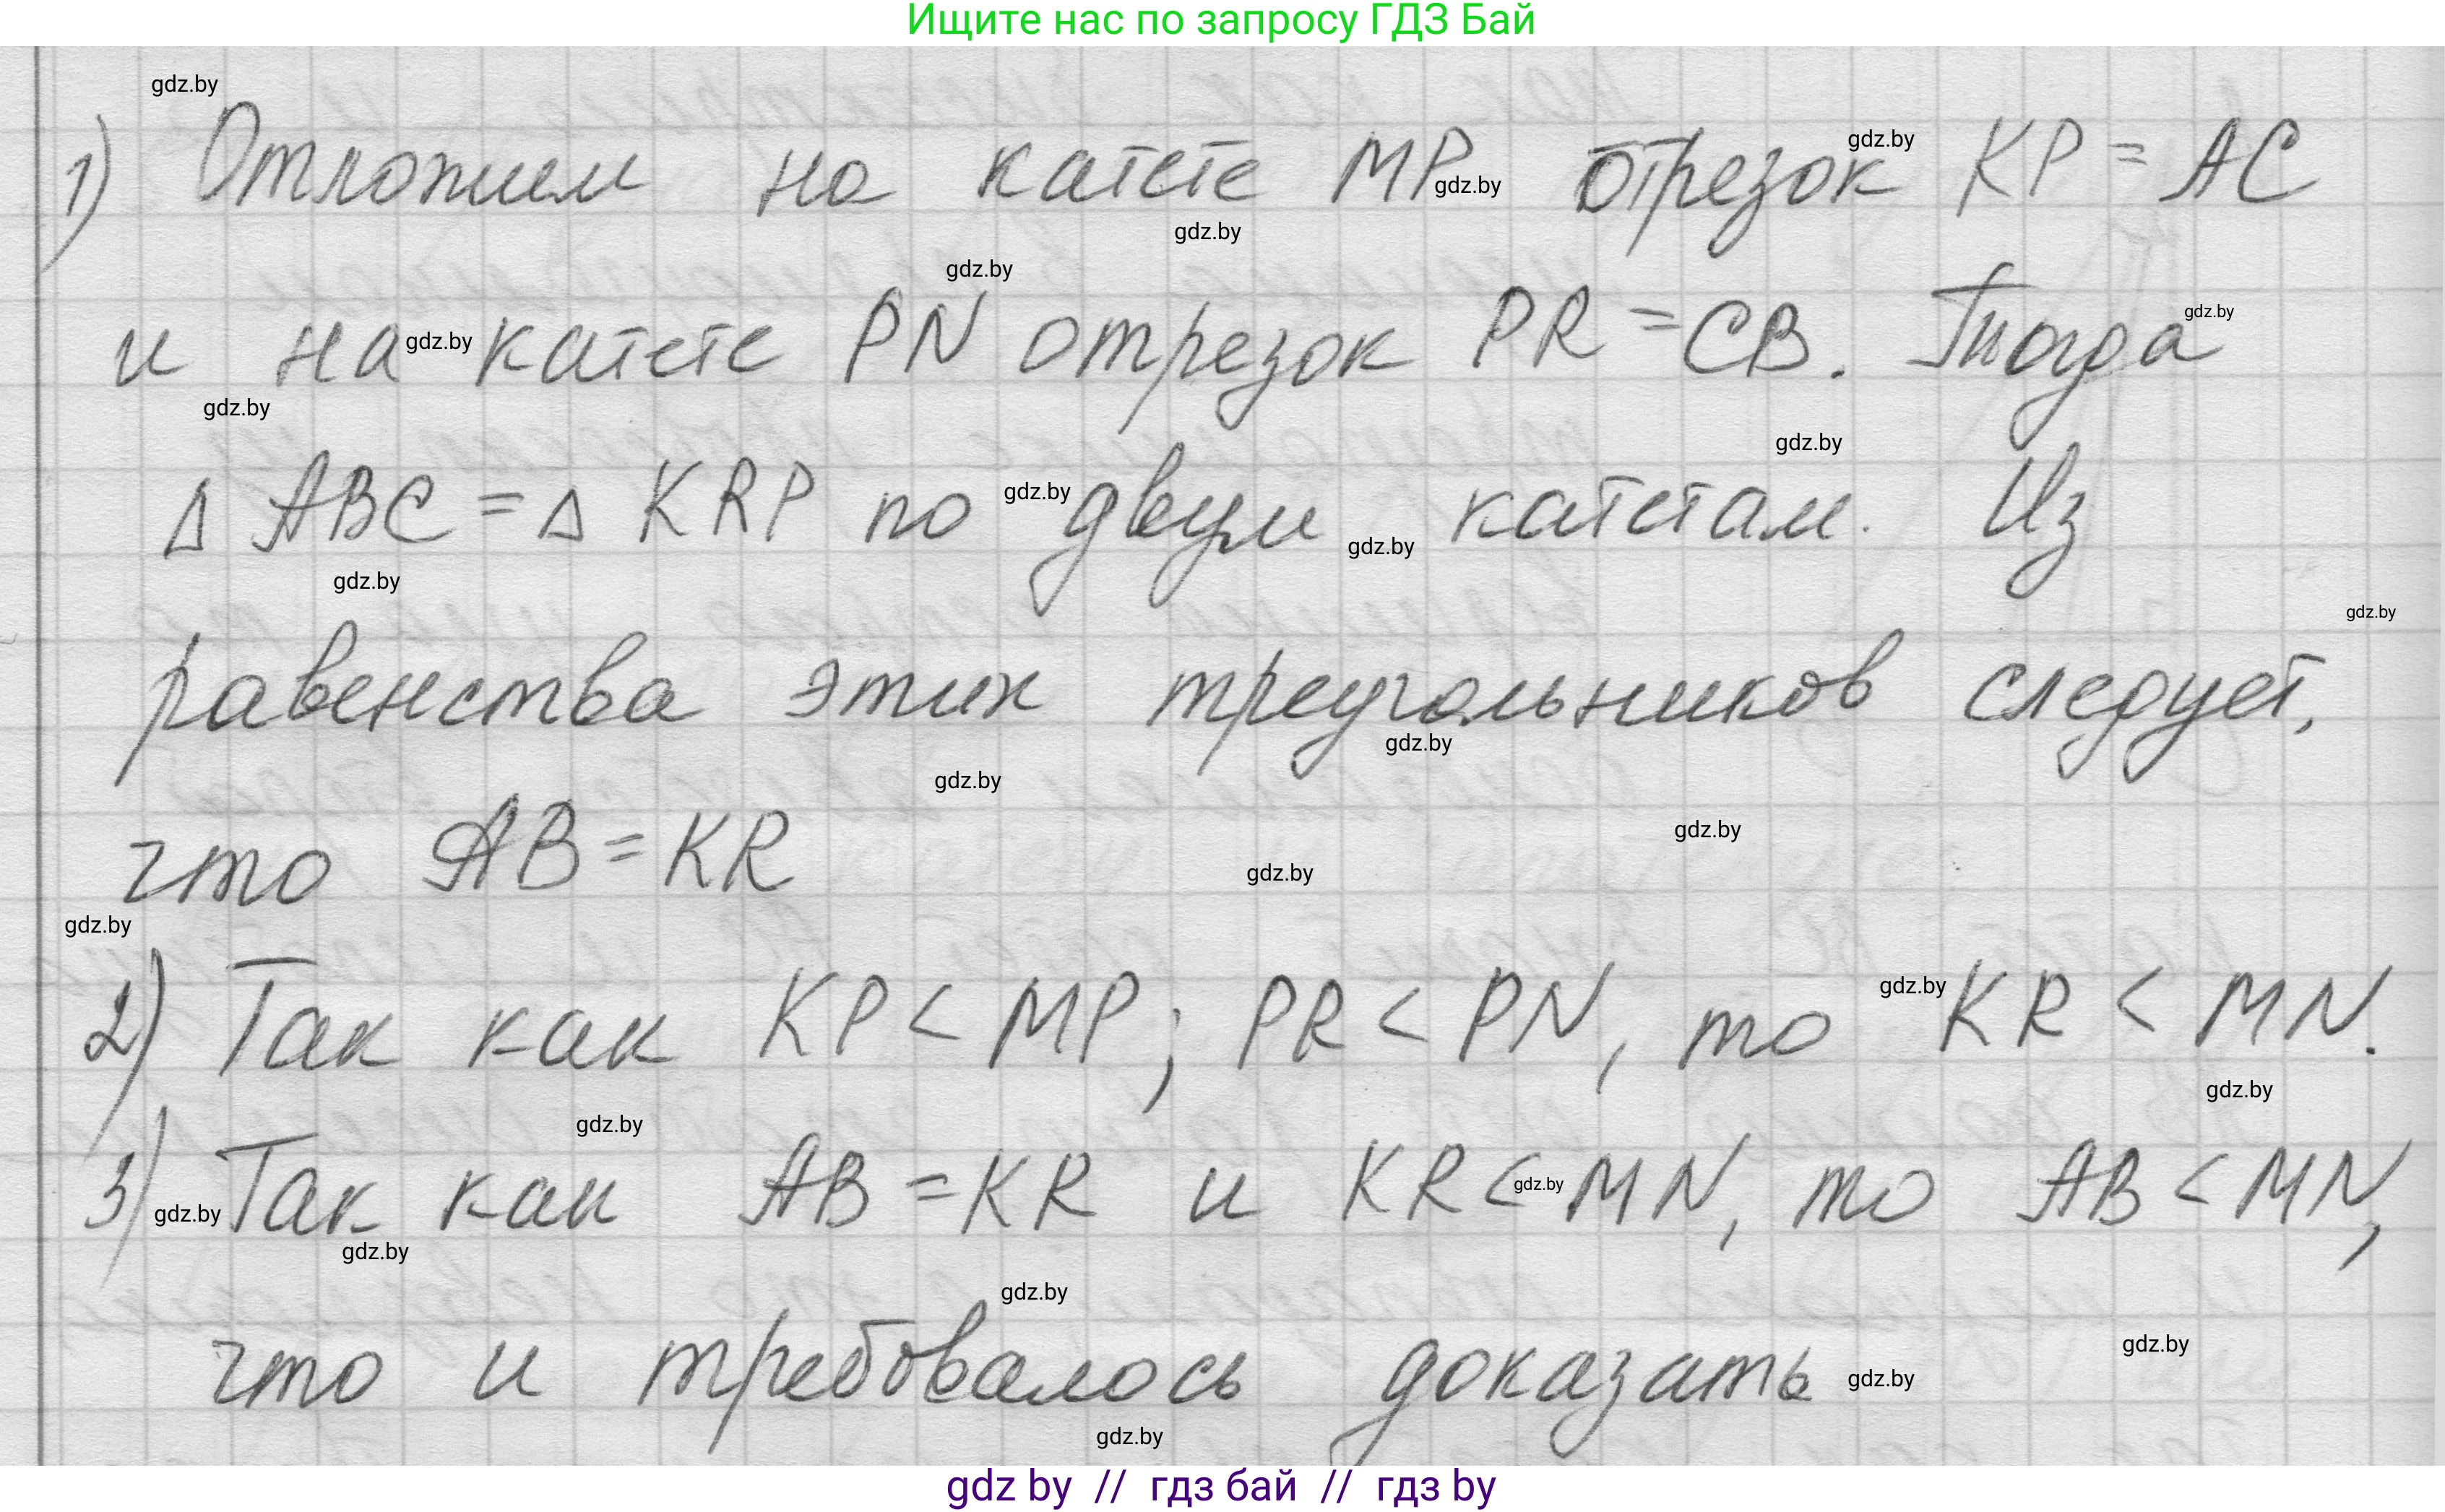 Ищите нас по запросу ГДЗ Бай
gdz.by
1) Отложим на катете MP отрезок KP = AC
gdz.by
gdz.by
gdz.by
gdz.by
и на катете PN отрезок PR = CB. Тогда
gdz.by
gdz.by
gdz.by
gdz.by
Δ ABC = Δ KRP по двум катетам. Из
gdz.by
gdz.by
gdz.by
gdz.by
равенства этих треугольников следует,
gdz.by
gdz.by
gdz.by
что AB = KR
gdz.by
gdz.by
2) Так как KP < MP; PR < PN, то KR < MN.
gdz.by
gdz.by
gdz.by
3) Так как AB = KR и KR < MN, то AB < MN,
gdz.by
gdz.by
gdz.by
gdz.by
gdz.by
что и требовалось доказать
gdz.by
gdz.by
gdz by // гдз бай // гдз by